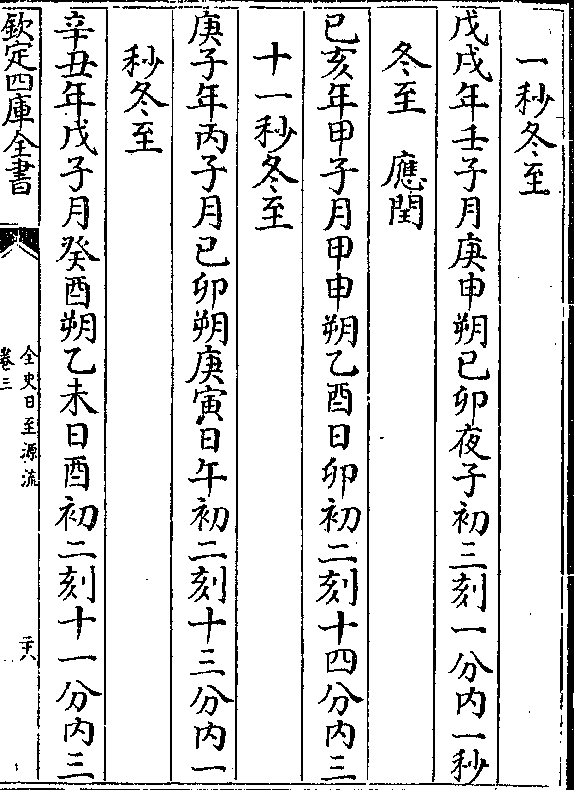 一秒冬至
戊戌年壬子月庚申朔已卯夜子初三刻一分内一秒
冬至　應閏
已亥年甲子月甲申朔乙酉日卯初二刻十四分内三
十一秒冬至
庚子年丙子月已卯朔庚寅日午初二刻十三分内一
秒冬至
辛丑年戊子月癸酉朔乙未日酉初二刻十一分内三
欽定四庫全書
全史日至源流
卷三
二十八